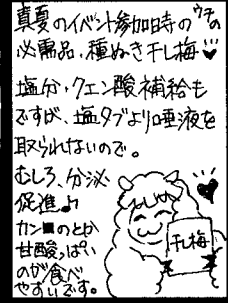 真夏のイベント参加時のウチの
必需品、種ぬき干し梅
塩分・クエン酸補給も
ですが、塩タブより唾液を
取られないので。
むしろ、分泌
促進♪
カン■のとか
甘酸っぱい
のが食べ
やすいです。
干し梅